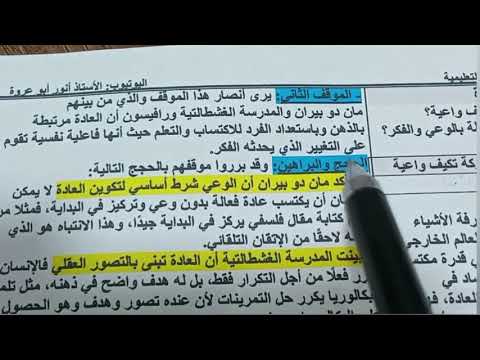 التعليمية
اليوتيوب: الأستاذ أنور أبو عروة
- الموقف الثاني: يرى أنصار هذا الموقف والذي من بينهم
مان دو بيران والمدرسة الغشطالتية ورافيسون أن العادة مرتبطة
بالذهن وباستعداد الفرد للاكتساب والتعلم حيث أنها فاعلية نفسية تقوم
على التغيير الذي يحدثه الفكر.
الحجج والبراهين: وقد برروا موقفهم بالحجج التالية:
كد مان دو بيران أن الوعي شرط أساسي لتكوين العادة لا يمكن
أن يكتسب عادة فعالة بدون وعي وتركيز في البداية، فمثلا
كتابة مقال فلسفي يركز في البداية جيدًا، وهذا الانتباه هو الذي
له لاحقًا من الإتقان التلقائي.
بينت المدرسة الغشطالتية أن العادة تبنى بالتصور العقلي فالإنسان
رر فعلًا من أجل التكرار فقط، بل له هدف واضح في ذهنه، مثل تلم
بكالوريا يكرر حل التمرينات لأن عنده تصور وهدف وهو الحصول
ف واعية؟
ة بالوعي والفكر؟
كة تكيف واعية
رفة الأشياء
لعالم الخارجي
في قدرة مكتس
العادة،